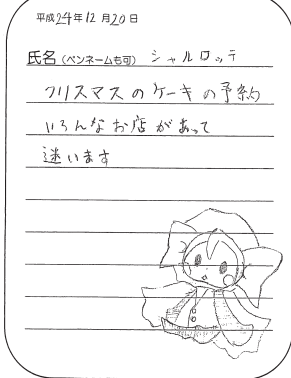 平成24年12月20日
氏名(ペンネームも可) シャルロッテ
クリスマスのケーキの予約
いろんなお店があって
迷います